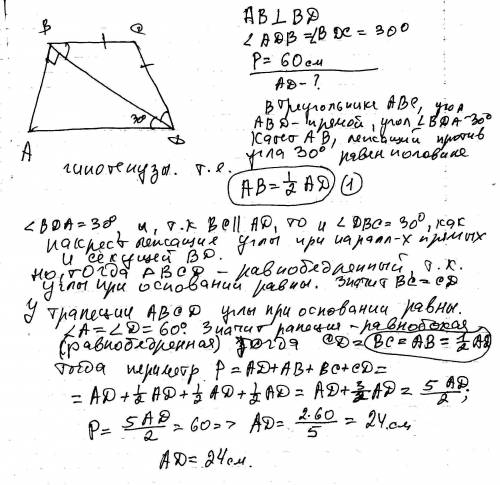 B C
30°
A D
AB ⊥ BD
∠ADB = ∠BDC = 30°
P = 60 см
AD - ?
В треугольнике ABC, угол
ABD - прямой, угол ∠BDA = 30°
Катет AB, лежащий против
угла 30° равен половине
гипотенузы. т.е. AB = 1/2 AD (1)
∠BDA = 30° и, т.к BC || AD, то и ∠DBC = 30°, как
накрест лежащие углы при паралл-х прямых
и секущей BD.
но, тогда ABCD - равнобедренный, т.к.
углы при основании равны. Значит BC = CD
У трапеции ABCD углы при основании равны.
∠A = ∠D = 60° Значит рапеция - равнобокая
(равнобедренная) тогда CD = BC = AB = 1/2 AD
Тогда периметр P = AD + AB + BC + CD =
= AD + 1/2 AD + 1/2 AD + 1/2 AD = AD + 3/2 AD = 5AD/2;
P = 5AD/2 = 60 => AD = 2·60/5 = 24 см
AD = 24 см.